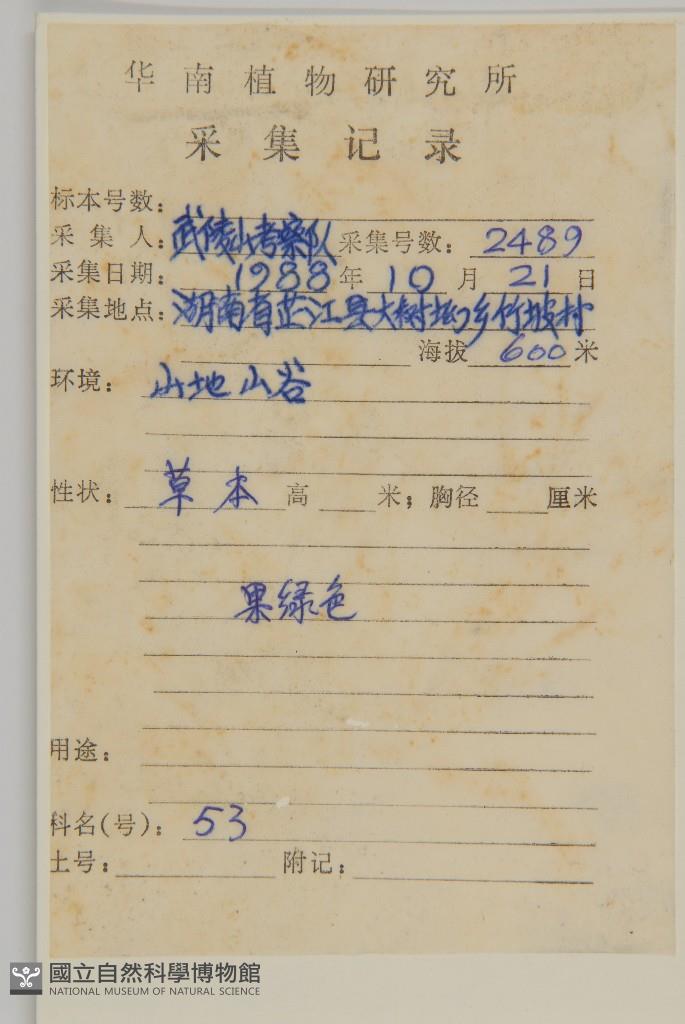 华南植物研究所
采集记录
标本号数：
采集人：武陵山考察队 采集号数：2489
采集日期：1988年10月21日
采集地点：湖南省芷江县大树坳乡竹坡村
海拔 600 米
环境：山地山谷
性状：草本 高 米；胸径 厘米
果绿色
用途：
科名(号)：53
土号： 附记：
國立自然科學博物館
NATIONAL MUSEUM OF NATURAL SCIENCE